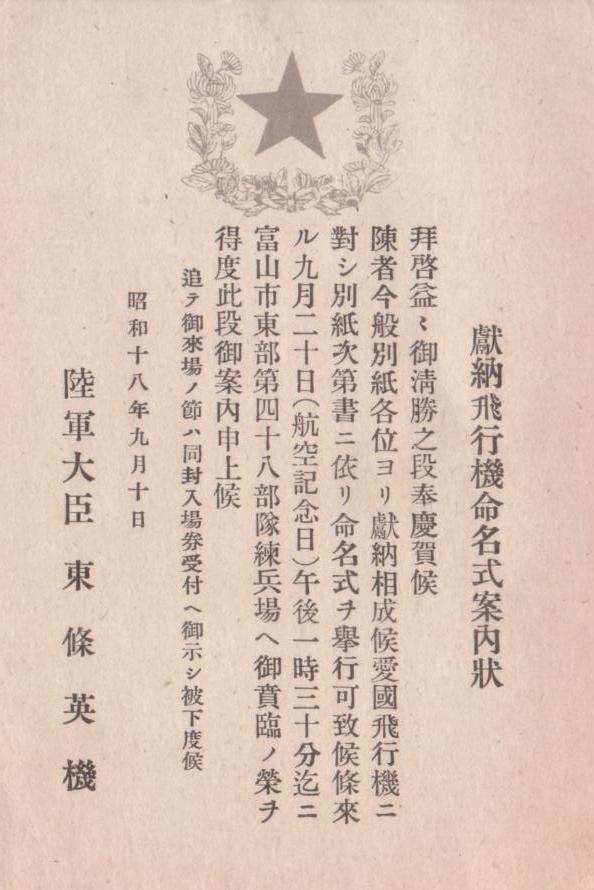 獻納飛行機命名式案內狀
拜啓益〻御淸勝之段奉慶賀候
陳者今般別紙各位ヨリ獻納相成候愛國飛行機ニ
對シ別紙次第書ニ依リ命名式ヲ擧行可致候條來
ル九月二十日(航空記念日)午後一時三十分迄ニ
富山市東部第四十八部隊練兵場ヘ御賁臨ノ榮ヲ
得度此段御案內申上候
追テ御來場ノ節ハ同封入場券受付ヘ御示シ被下度候
昭和十八年九月十日
陸軍大臣 東條英機